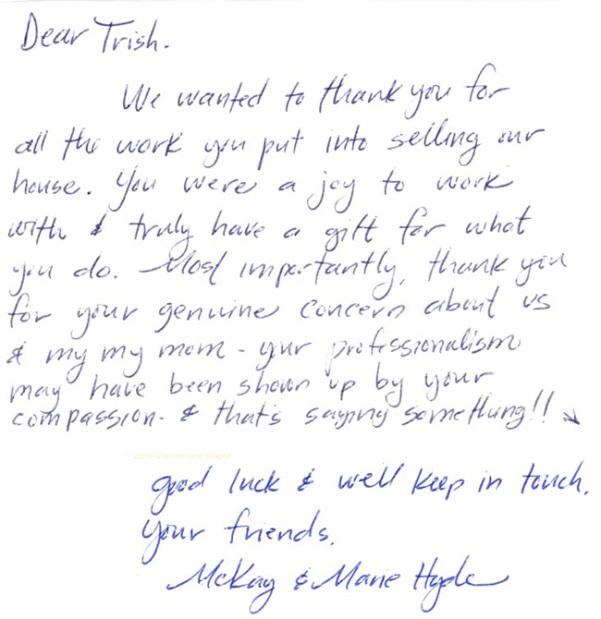 Dear Trish.
We wanted to thank you for
all the work you put into selling our
house. You were a joy to work
with & truly have a gift for what
you do. Most importantly, thank you
for your genuine concern about us
& my my mom - your professionalism
may have been shown up by your
compassion - & that's saying something!!
good luck & we'll keep in touch.
Your friends,
McKay & Marie Hyde